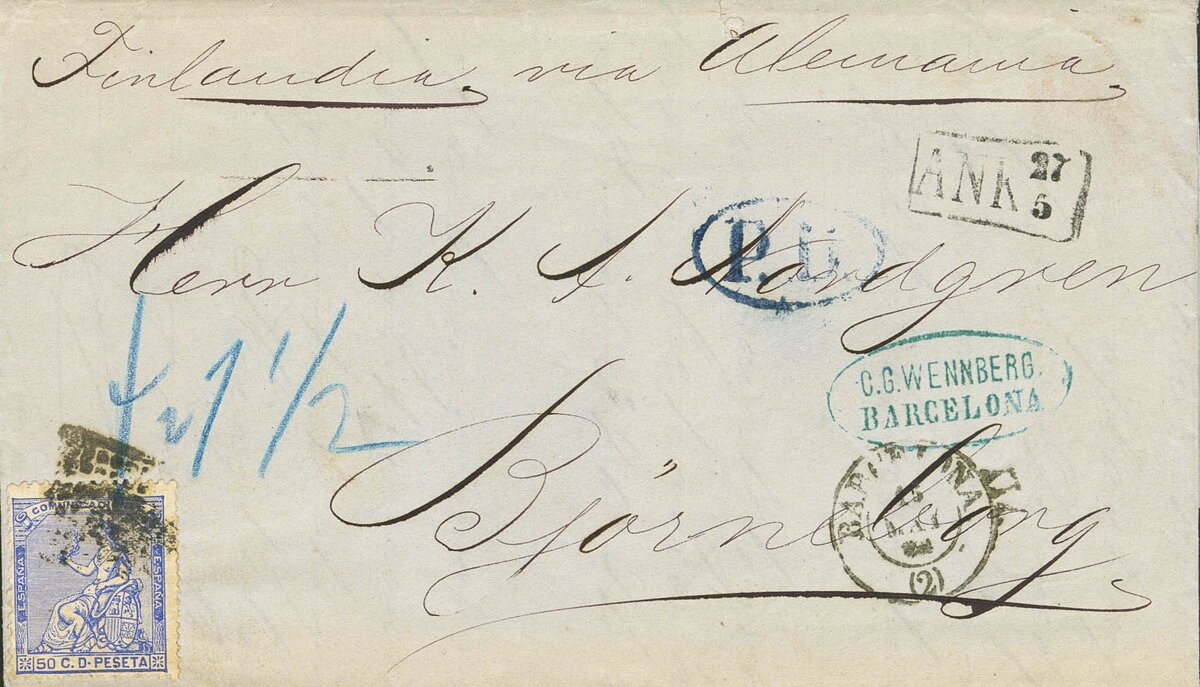 Finlandia. via Alemania.
ANK 27/5
Herr K. A. Nordgren
P.D.
fr 1 1/2
C.G. WENNBERG.
BARCELONA
Björneborg.
BARCELONA
MAY
(2)
COMUNICACI
ESPAÑA
ESPAÑA
50 C. D. PESETA